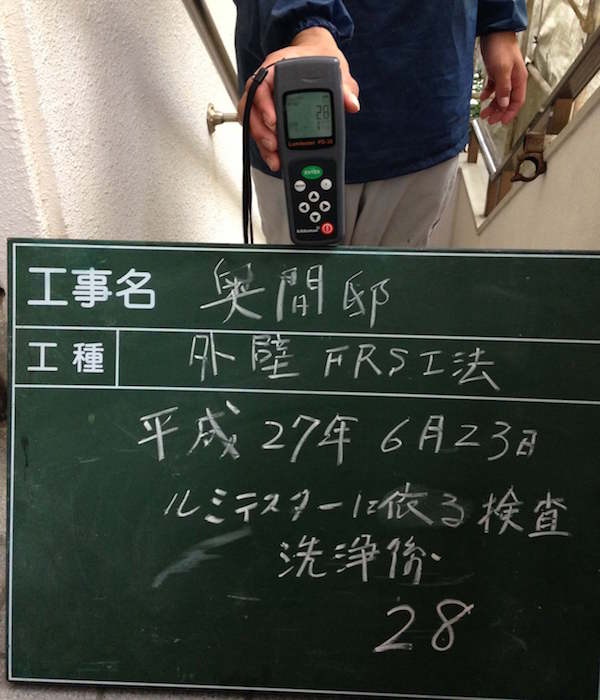 28
Lumitester PD-20
ENTER
Kikkoman
工事名 奥間邸
工種 外壁 FRS工法
平成27年6月23日
ルミテスターに依る検査
洗浄後
28